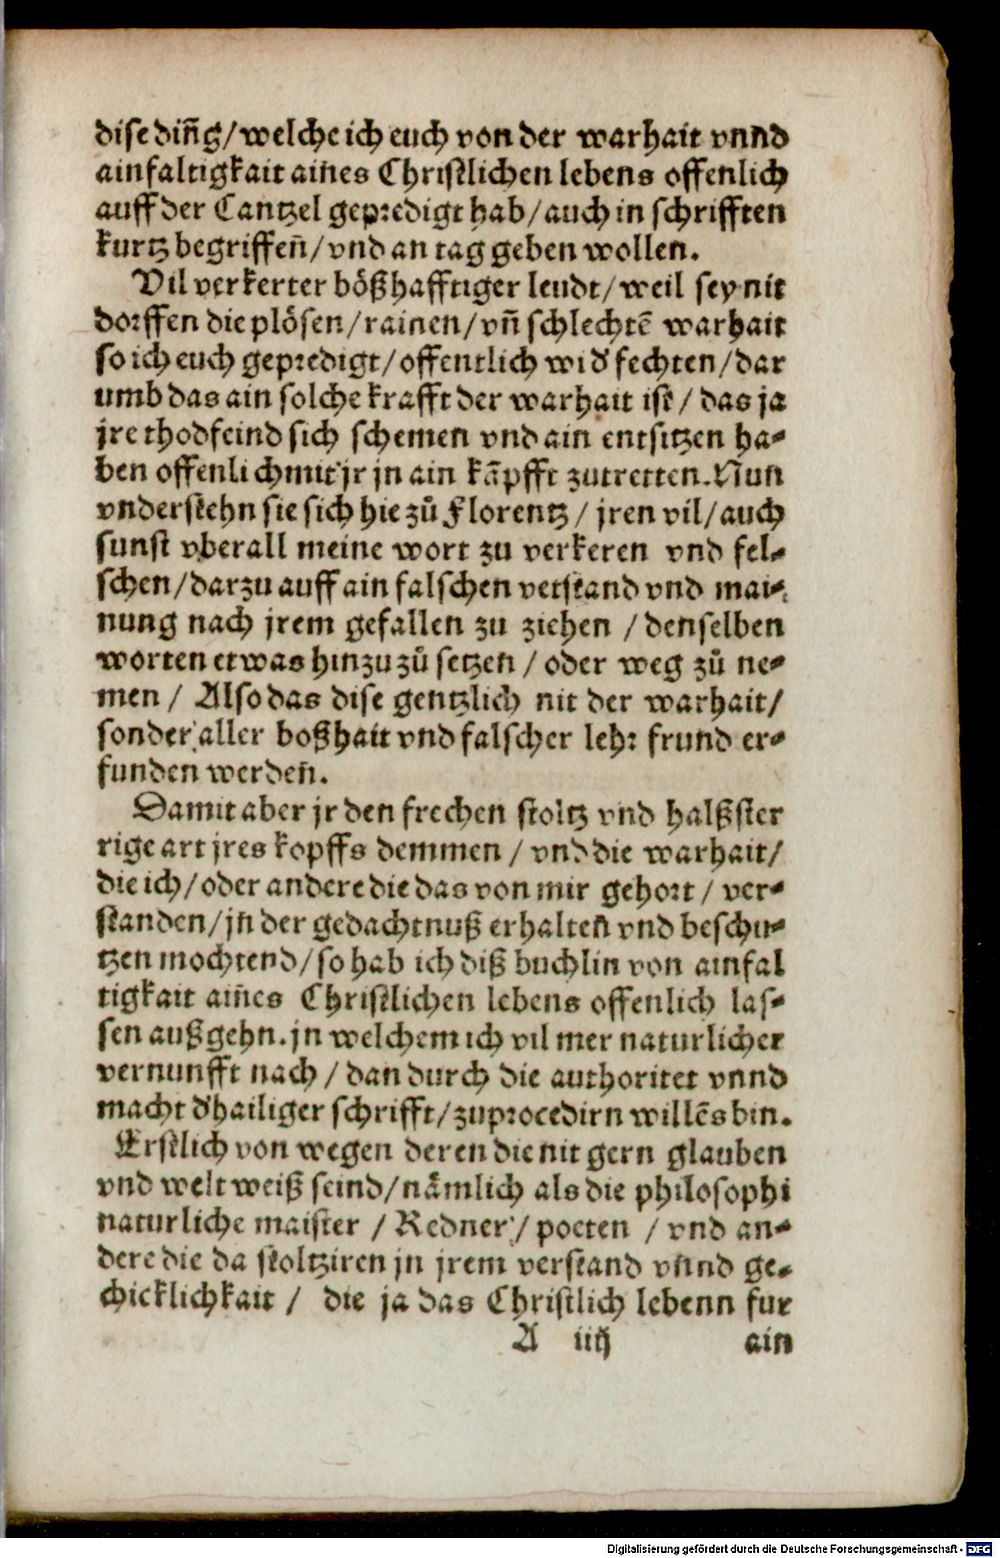 dise din̄g/welche ich euch von der warhait vnnd
ainfaltigkait ain̄es Christlichen lebens offenlich
auff der Cantzel gepredigt hab/auch in schrifften
kurtz begriffen̄/vnd an tag geben wollen.
Vil verkerter bößhafftiger leudt/weil sey nit
dorffen die plösen/rainen/vn̄ schlechtē warhait
so ich euch gepredigt/offentlich wid' fechten/dar
umb das ain solche krafft der warhait ist/das ja
jre thodfeind sich schemen vnd ain entsitzen ha-
ben offenlich mit jr jn ain kāpfft zutretten. Nun
vnderstehn sie sich hie zů Florentz/jren vil/auch
sunst vberall meine wort zu verkeren vnd fel-
schen/darzu auff ain falschen verstand vnd mai-
nung nach jrem gefallen zu ziehen/denselben
worten etwas hinzu zů setzen/oder weg zů ne-
men/Also das dise gentzlich nit der warhait/
sonder aller boßhait vnd falscher lehr frund er-
funden werden̄.
Damit aber jr den frechen stoltz vnd halßster
rige art jres kopffs demmen/vnd die warhait/
die ich/oder andere die das von mir gehort/ver-
standen/jn̄ der gedachtnuß erhalten̄ vnd beschu-
tzen mochtend/so hab ich diß buchlin von ainfal
tigkait ain̄es Christlichen lebens offenlich las-
sen außgehn. jn welchem ich vil mer naturlicher
vernunfft nach/dan durch die authoritet vnnd
macht d'hailiger schrifft/zuprocedirn willēs bin.
Erstlich von wegen deren die nit gern glauben
vnd welt weiß seind/nämlich als die philosophi
naturliche maister/Redner/poeten/vnd an-
dere die da stoltziren jn jrem verstand vnnd ge-
chicklichkait/die ja das Christlich lebenn fur
A iiij ain
Digitalisierung gefördert durch die Deutsche Forschungsgemeinschaft - DFG